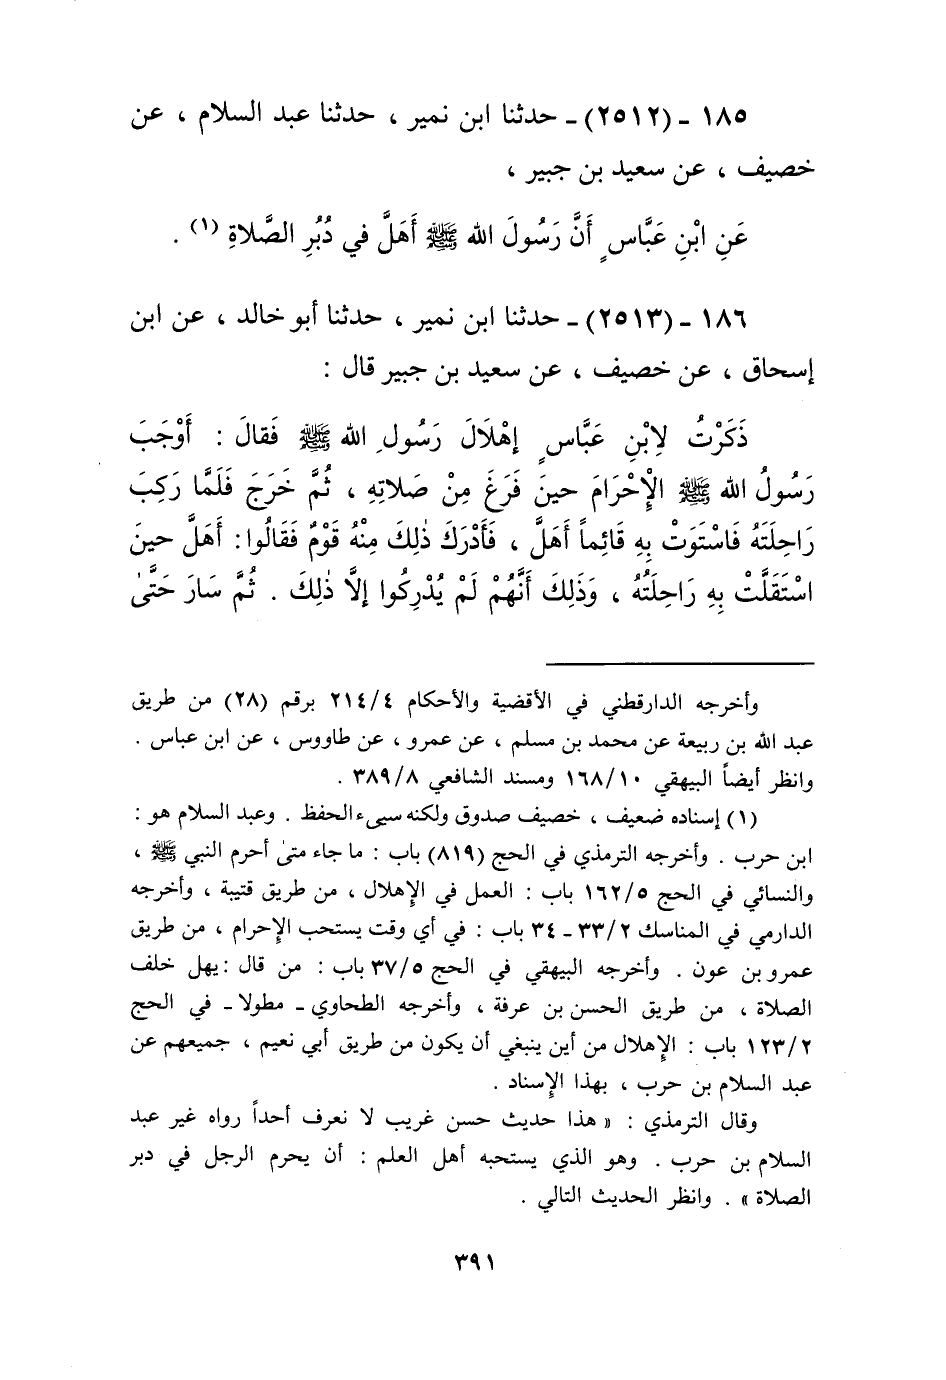 ١٨٥ - (٢٥١٢) - حدثنا ابن نمير ، حدثنا عبد السلام ، عن
خصيف ، عن سعيد بن جبير ،
عَنِ ابْنِ عَبَّاسٍ أَنَّ رَسُولَ الله ﷺ أَهَلَّ في دُبُرِ الصَّلاةِ (١) .
١٨٦ - (٢٥١٣) - حدثنا ابن نمير ، حدثنا أبو خالد ، عن ابن
إسحاق ، عن خصيف ، عن سعيد بن جبير قال :
ذَكَرْتُ لِابْنِ عَبَّاسٍ إِهْلَالَ رَسُولِ الله ﷺ فَقَالَ : أَوْجَبَ
رَسُولُ الله ﷺ الْإِحْرَامَ حينَ فَرَغَ مِنْ صَلاتِهِ ، ثُمَّ خَرَجَ فَلَمَّا رَكِبَ
رَاحِلَتَهُ فَاسْتَوَتْ بِهِ قَائِماً أَهَلَّ ، فَأَدْرَكَ ذٰلِكَ مِنْهُ قَوْمٌ فَقَالُوا : أَهَلَّ حينَ
اسْتَقَلَّتْ بِهِ رَاحِلَتُهُ ، وَذٰلِكَ أَنَّهُمْ لَمْ يُدْرِكُوا إلَّا ذٰلِكَ . ثُمَّ سَارَ حَتَّىٰ
وأخرجه الدارقطني في الأقضية والأحكام ٢١٤/٤ برقم (٢٨) من طريق
عبد الله بن ربيعة عن محمد بن مسلم ، عن عمرو ، عن طاووس ، عن ابن عباس .
وانظر أيضاً البيهقي ١٦٨/١٠ ومسند الشافعي ٣٨٩/٨ .
(١) إسناده ضعيف ، خصيف صدوق ولكنه سيىء الحفظ . وعبد السلام هو :
ابن حرب . وأخرجه الترمذي في الحج (٨١٩) باب : ما جاء متىٰ أحرم النبي ﷺ ،
والنسائي في الحج ١٦٢/٥ باب : العمل في الإهلال ، من طريق قتيبة ، وأخرجه
الدارمي في المناسك ٣٣/٢ - ٣٤ باب : في أي وقت يستحب الإحرام ، من طريق
عمرو بن عون . وأخرجه البيهقي في الحج ٣٧/٥ باب : من قال : يهل خلف
الصلاة ، من طريق الحسن بن عرفة ، وأخرجه الطحاوي - مطولا - في الحج
١٢٣/٢ باب : الإهلال من أين ينبغي أن يكون من طريق أبي نعيم ، جميعهم عن
عبد السلام بن حرب ، بهذا الإسناد .
وقال الترمذي : « هذا حديث حسن غريب لا نعرف أحداً رواه غير عبد
السلام بن حرب . وهو الذي يستحبه أهل العلم : أن يحرم الرجل في دبر
الصلاة » . وانظر الحديث التالي .
٣٩١